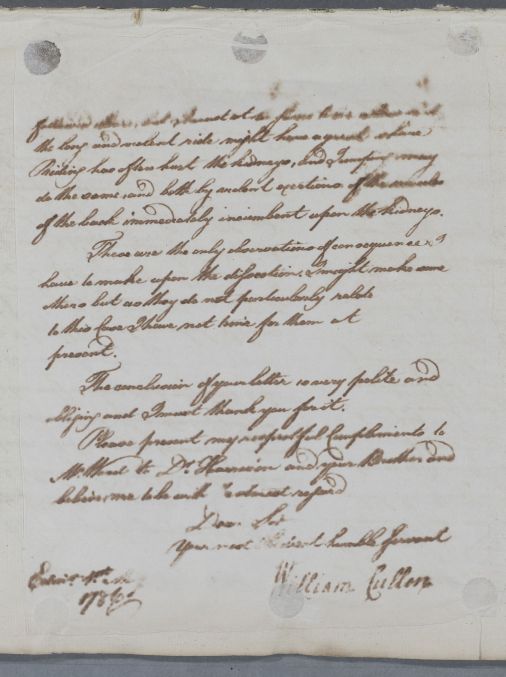 the long and violent ride might have a great share
Riding has often hurt the kidneys, and Jumping may
do the same, and both by violent exertions of the muscles
of the back immediately incumbent upon the kidneys.
These are the only observations of consequence I
have to make upon the dissection. I might make some
others but as they do not particularly relate
to this Case I have not time for them at
present.
The conclusion of your letter is very polite and
obliging and I must thank you for it.
Please present my respectful Compliments to
Mr. West to Dr. and your Brother and
believe me to be with regard
Dear Sir
Your most humble Servant
William Cullen